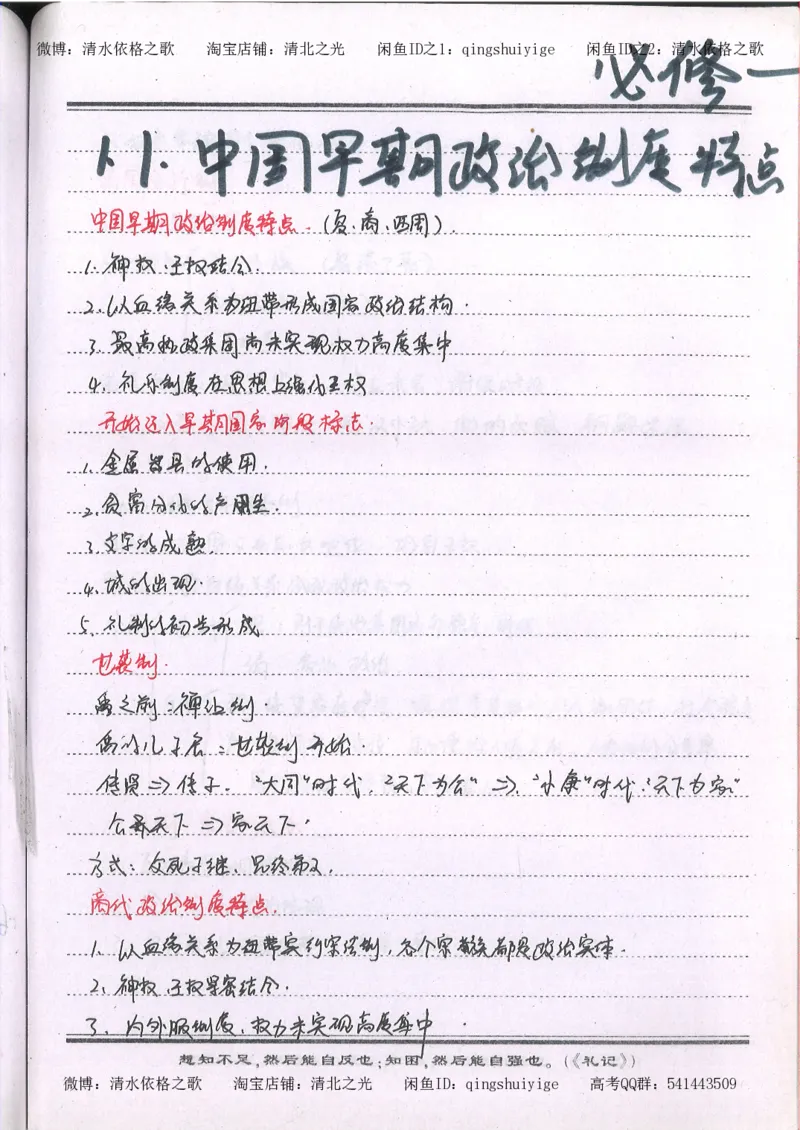 微博：清水依格之歌 淘宝店铺：清北之光 闲鱼ID之1：qingshuiyige 闲鱼ID之2：清水依格之歌
必修一
1.1. 中国早期政治制度特点
中国早期政治制度特点.（夏、商、西周）.
1. 神权、王权结合.
2. 以血缘关系为纽带形成国家政治结构.
3. 最高执政集团尚未实现权力高度集中
4. 礼乐制度在思想上强化王权
开始迈入早期国家阶段标志.
1. 金属器具的使用.
2. 贫富分化的产生.
3. 文字的成熟.
4. 城的出现.
5. 礼制的初步形成
世袭制.
禹之前：禅让制.
禹的儿子启：世袭制开始.
传贤⇒传子. “大同”时代.“天下为公”⇒.“小康”时代.“天下为家”
公天下⇒家天下.
方式：父死子继、兄终弟及.
商代政治制度特点.
1. 以血缘关系为纽带实行宗法制，各个宗族都是政治实体.
2. 神权、王权紧密结合.
3. 内外服制度，权力未实现高度集中.
想知不足，然后能自反也；知困，然后能自强也。（《礼记》）
微博：清水依格之歌 淘宝店铺：清北之光 闲鱼ID：qingshuiyige 高考QQ群：541443509